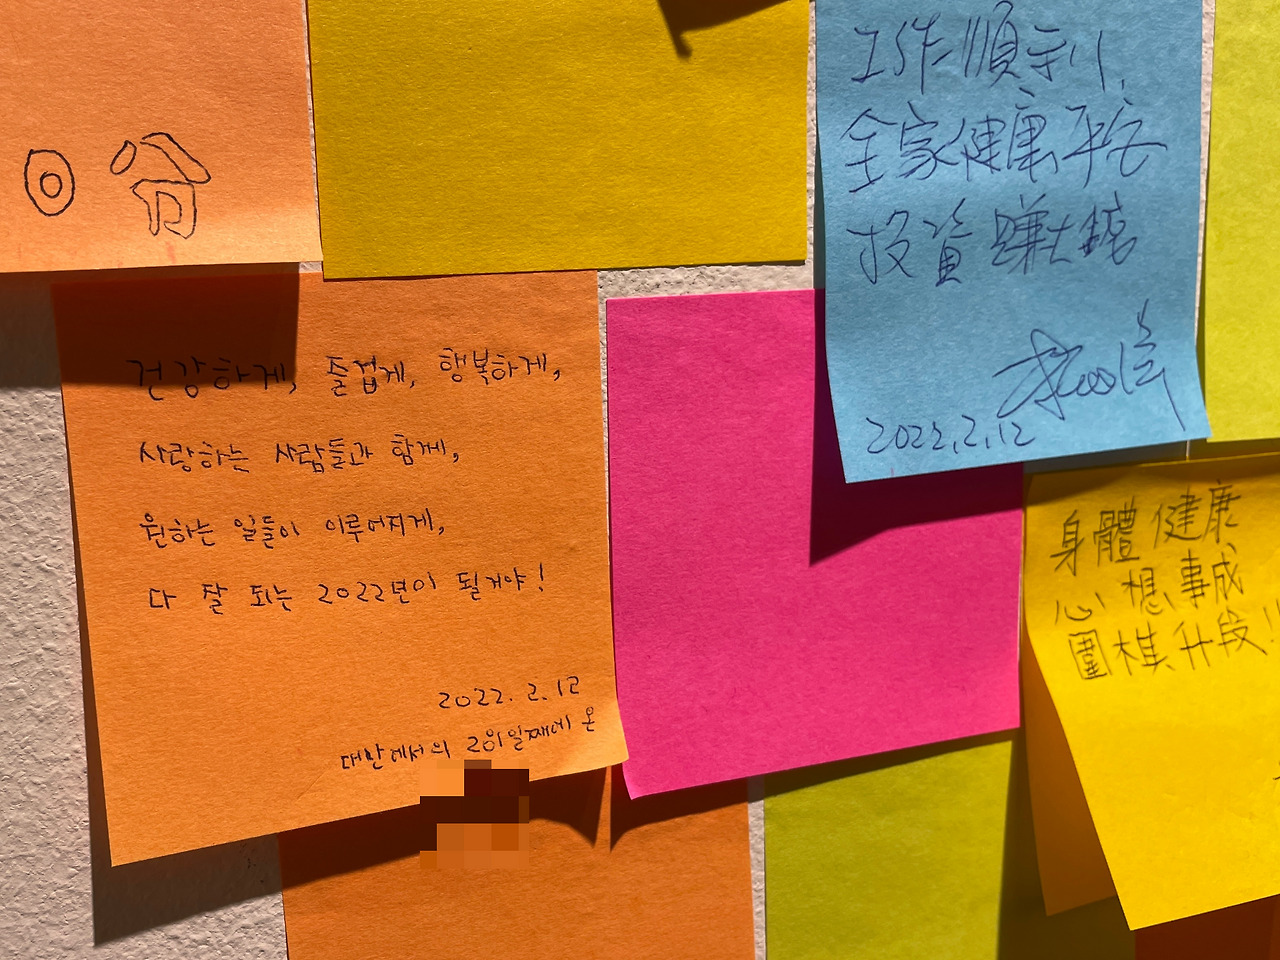 분
건강하게, 즐겁게, 행복하게,
사랑하는 사람들과 함께,
원하는 일들이 이루어지게,
다 잘 되는 2022년이 될거야!
2022. 2. 12
대만에서의 온
工作順利,
全家健康平安
投資賺大錢
2022.2.12
身體健康
心想事成
圍棋升段!!